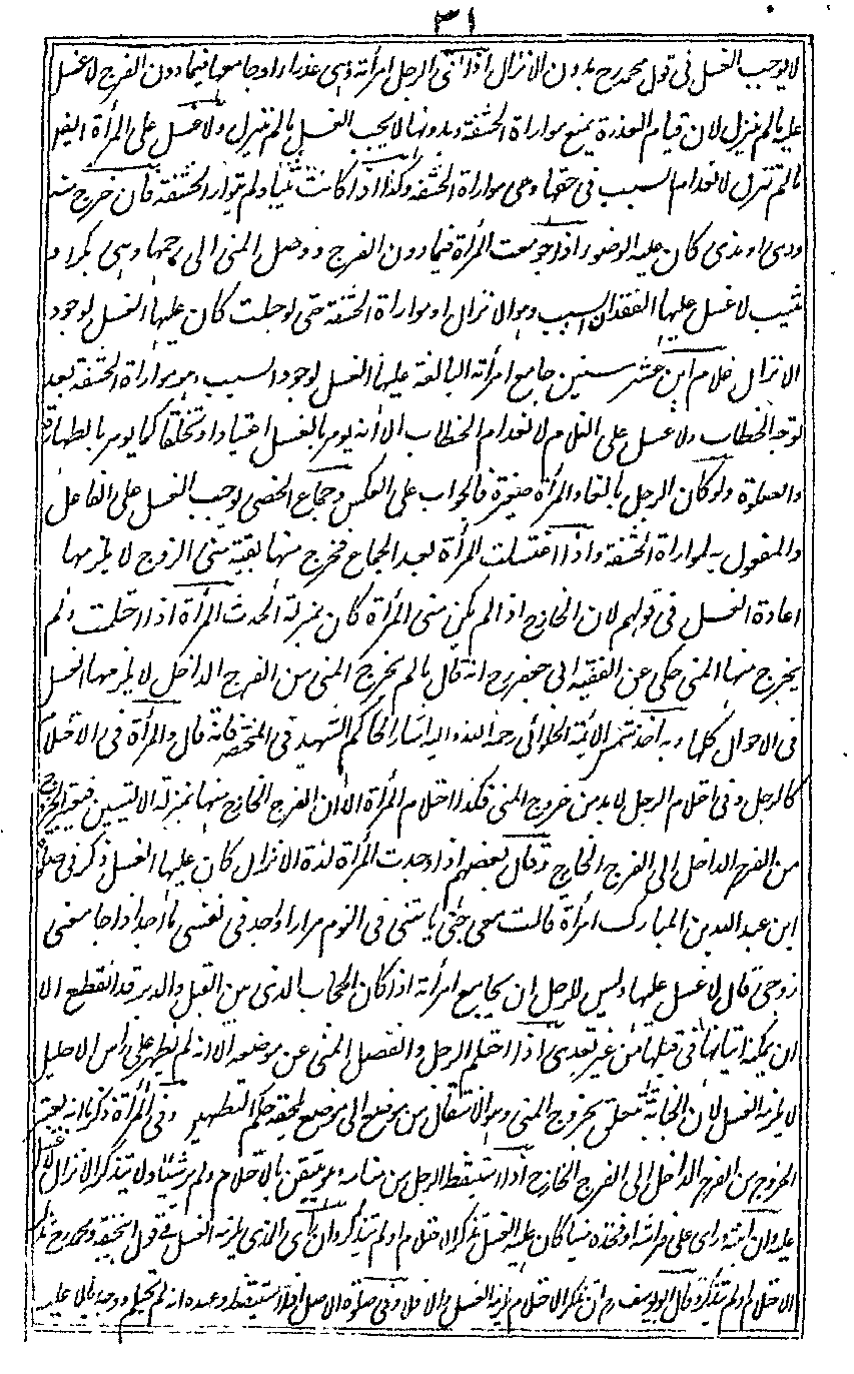 ٣١
لا يوجب الغسل فى قول محمد رح بدون الانزال اذا اتى الرجل امرأته وهى عذراء او جامعها فيما دون الفرج لا غسل
عليه ما لم ينزل لان قيام العذرة يمنع مواراة الحشفة وبدونها لا يجب الغسل ما لم ينزل ولا غسل على المرأة ايضا
ما لم تنزل لانعدام السبب فى حقها وهى مواراة الحشفة وكذا اذا كانت ثيبا ولم يتوار الحشفة فان خرج منه
ودى او مذى كان عليه الوضوء اذا جومعت المرأة فيما دون الفرج ووصل المنى الى رحمها وهى بكر او
ثيب لا غسل عليها لفقدان السبب وهو الانزال او مواراة الحشفة حتى لو حبلت كان عليها الغسل لوجود
الانزال غلام ابن عشر سنين جامع امرأته البالغة عليها الغسل لوجود السبب وهو مواراة الحشفة بعد
توجه الخطاب ولا غسل على الغلام لانعدام الخطاب الا انه يومر بالغسل اعتيادا وتخلقا كما يومر بالطهارة
والصلوة ولو كان الرجل بالغا والمرأة صغيرة فالجواب على العكس وجماع الخصى يوجب الغسل على الفاعل
والمفعول به لمواراة الحشفة واذا اغتسلت المرأة بعد الجماع فخرج منها بقية منى الزوج لا يلزمها
اعادة الغسل فى قولهم لان الخارج اذا لم يكن منى المرأة كان بمنزلة الحدث المرأة اذا احتلمت ولم
يخرج منها المنى حكى عن الفقيه ابى جعفر رح انه قال ما لم يخرج المنى من الفرج الداخل لا يلزمها الغسل
فى الاحوال كلها وبه اخذ شمس الائمة الحلوائى رحمه الله واليه اشار الحاكم الشهيد فى المختصر فانه قال والمرأة فى الاحتلام
كالرجل وفى احتلام الرجل لا بد من خروج المنى فكذا احتلام المرأة الا ان الفرج الخارج منها بمنزلة الاليتين فيعتبر الخروج
من الفرج الداخل الى الفرج الخارج وقال بعضهم اذا وجدت المرأة لذة الانزال كان عليها الغسل ذكر فى صلوة
ابن عبد الله بن المبارك امرأة قالت معى جنى ياتينى فى النوم مرارا واجد فى نفسى ما اجد اذا جامعنى
زوجى قال لا غسل عليها وليس للرجل ان يجامع امرأته اذا كان الحجاب الذى بين القبل والدبر قد انقطع الا
ان يمكنه اتيانها فى قبلها من غير تعدى اذا احتلم الرجل وانفصل المنى عن موضعه الا انه لم يظهر على رأس الاحليل
لا يلزمه الغسل لأن الجنابة تتعلق بخروج المنى وهو الانتقال من موضع الى موضع يلحقه حكم التطهير وفى المرأة ذكرنا انه يعتبر
الخروج من الفرج الداخل الى الفرج الخارج اذا استيقظ الرجل من منامه وهو يتيقن بالاحتلام ولم ير شيئا ولا يتذكر الانزال لا غسل
عليه وان انتبه ورأى على فراشه او فخذه منيا كان عليه الغسل تذكر الاحتلام او لم يتذكر وان رأى المذى يلزمه الغسل فى قول ابى حنيفة ومحمد رح تذكر
الاحتلام او لم يتذكر وقال ابو يوسف رح ان تذكر الاحتلام يلزمه الغسل والا فلا وفى صلوة الاصل اذا استيقظ وعنده انه لم يحتلم ووجد بللا عليه